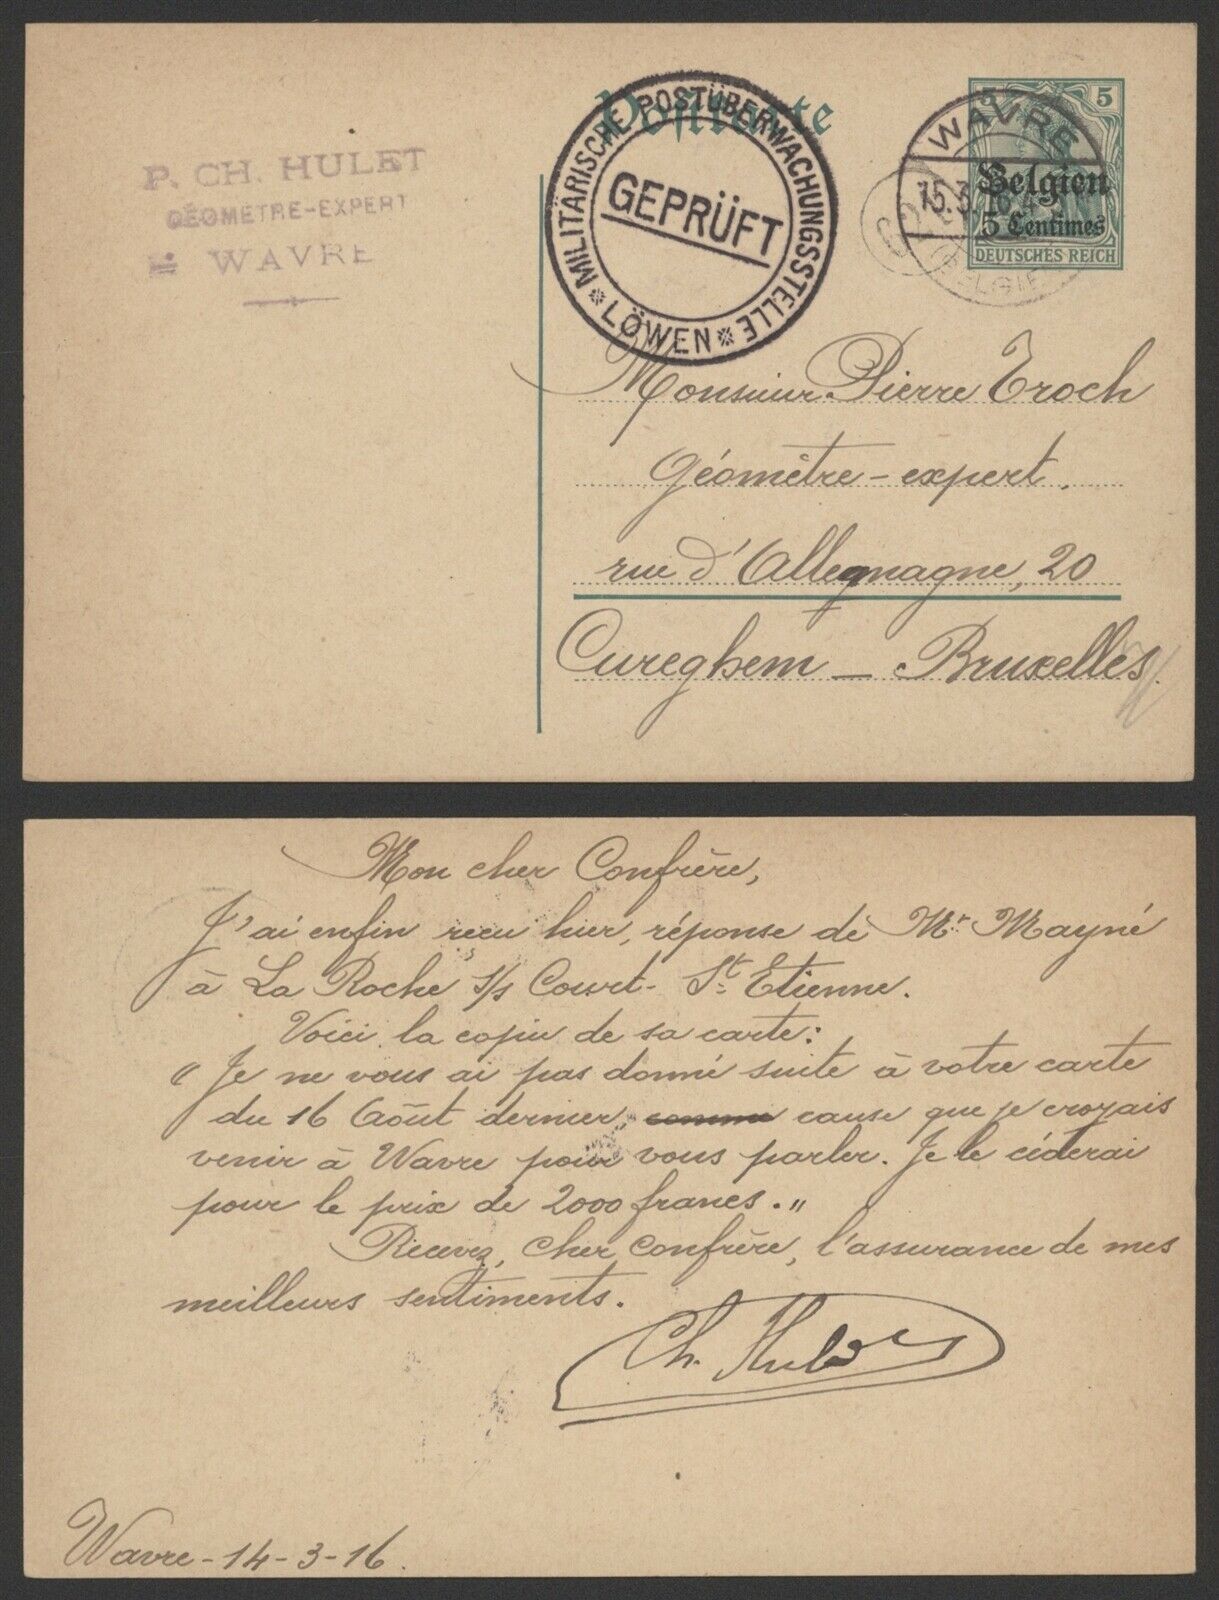 P. CH. HULET
GÉOMÈTRE-EXPERT
WAVRE
Postkarte
MILITÄRISCHE POSTÜBERWACHUNGSSTELLE
GEPRÜFT
* LÖWEN *
5 5
WAVRE
15.3.16 4-
(BELGIEN
Belgien
5 Centimes
DEUTSCHES REICH
Monsieur Pierre Troch
Géomètre-expert.
rue d'Allemagne, 20
Cureghem - Bruxelles.
Mon cher Confrère,
J'ai enfin reçu hier, réponse de Mr Mayné
à La Roche s/s Court-St-Etienne.
Voici la copie de sa carte:
"Je ne vous ai pas donné suite à votre carte
du 16 Août dernier comme cause que je croyais
venir à Wavre pour vous parler. Je le céderai
pour le prix de 2000 francs."
Recevez, cher confrère, l'assurance de mes
meilleurs sentiments.
Ch. Hulet
Wavre-14-3-16.